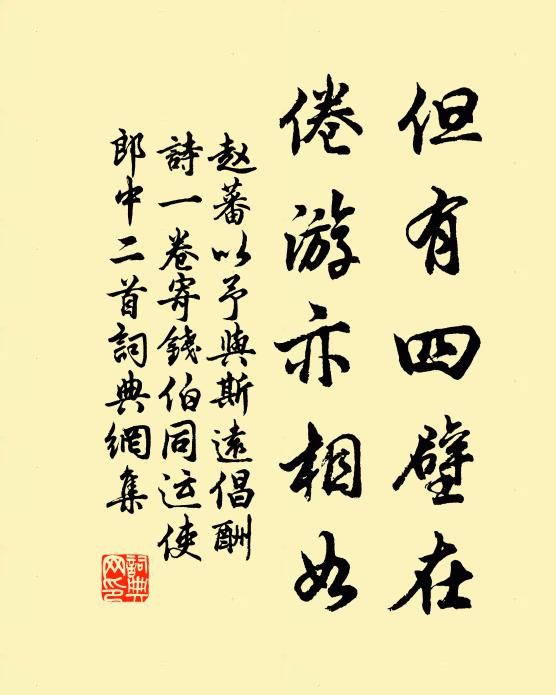 但有四壁在
倦游亦相如
赵蕃以予與斯遠倡酬
詩一卷寄錢伯同运使
郎中二首詞典網集
詞典
网印